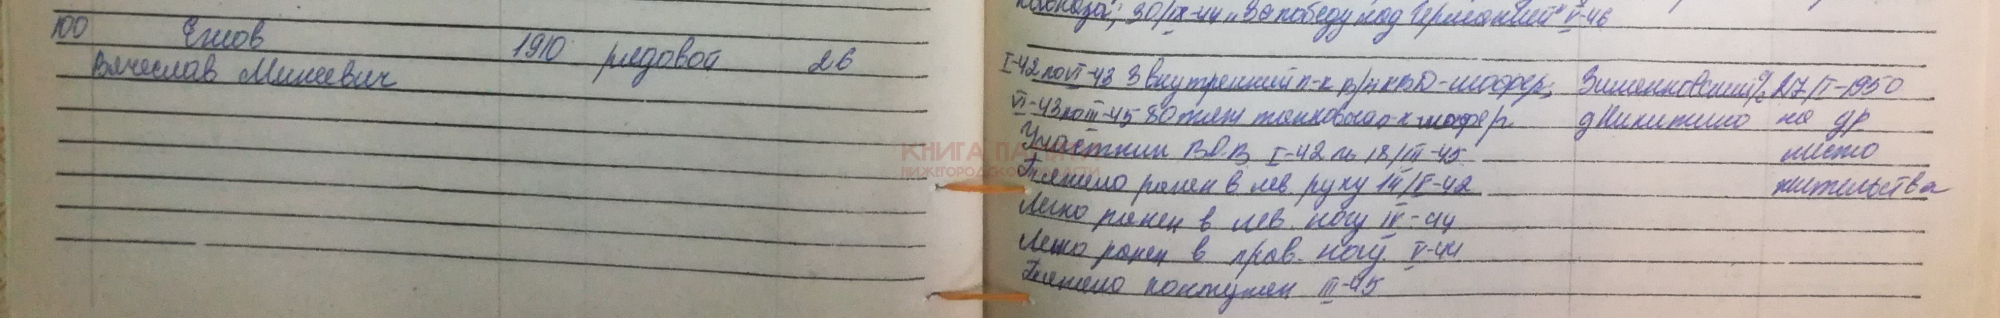 30/IX-44 "За победу над Германией" V-46
100 Ежов 1910 рядовой 26
Вячеслав Минеевич
I-42 по VI-43 3 внутренний п-к в/НКВД-шофер; 27/I-1950
VI-43 по III-45 80 тяж танковый п-к шофер д Никитино на др
Участник В.О.В I-42 по 18/III-45 место
Тяжело ранен в лев. руку 14/V-42 жительства
Легко ранен в лев. ногу IX-44
Легко ранен в прав. ногу V-44
Тяжело контужен III-45
КНИГА ПАМЯТИ
НИЖЕГОРОДСКОЙ